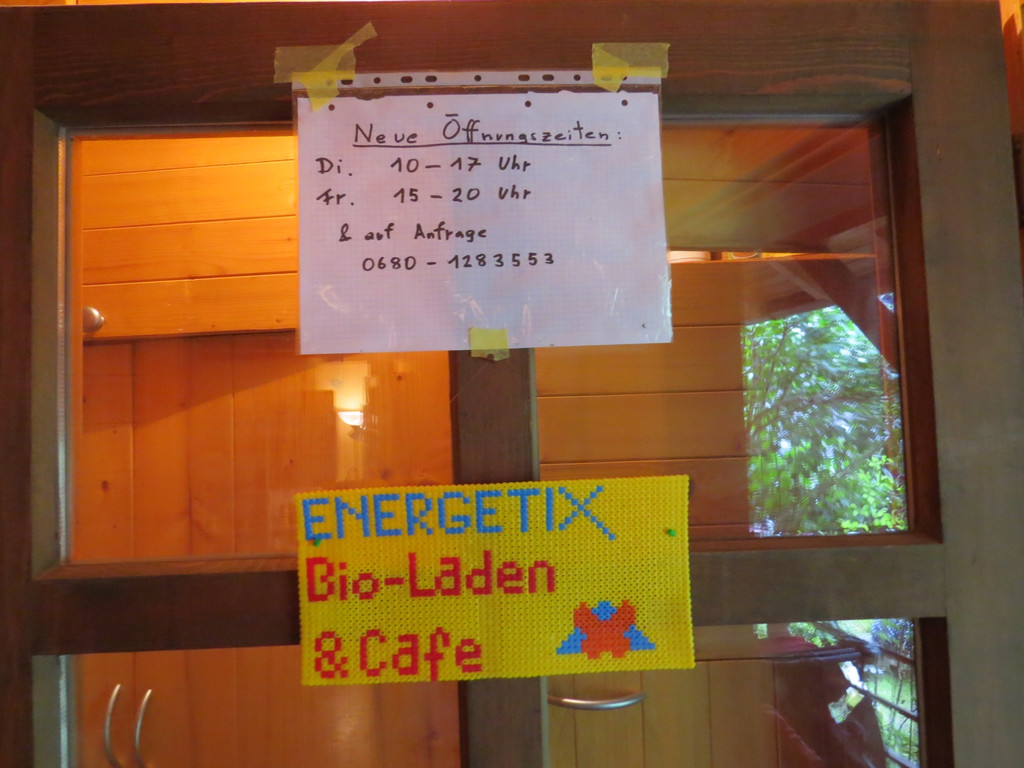 Neue Öffnungszeiten:
Di. 10 - 17 Uhr
Fr. 15 - 20 Uhr
& auf Anfrage
0680 - 1283553
ENERGETIX
Bio-Laden
& Cafe